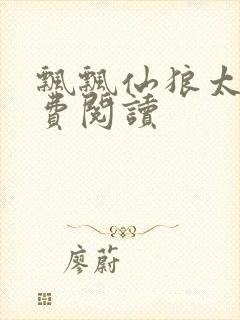 飄飄仙狼太
費閱讀
廖蔚